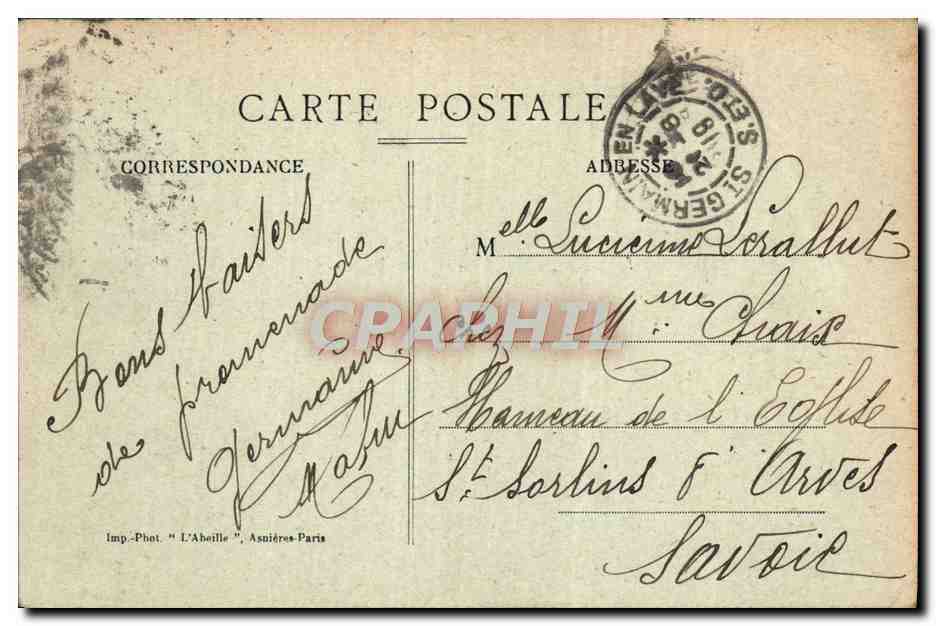 CARTE POSTALE
CORRESPONDANCE
Bons baisers
de promenade
Germaine
Imp.-Phot. " L'Abeille ", Asnières-Paris
ADRESSE
ST GERMAIN EN LAYE S.ET O.
Melle Lucienne Lerallut
Chez Mme Chaix
Hameau de l'Eglise
St Sorlins d'Arves
Savoie
CPAPHIL